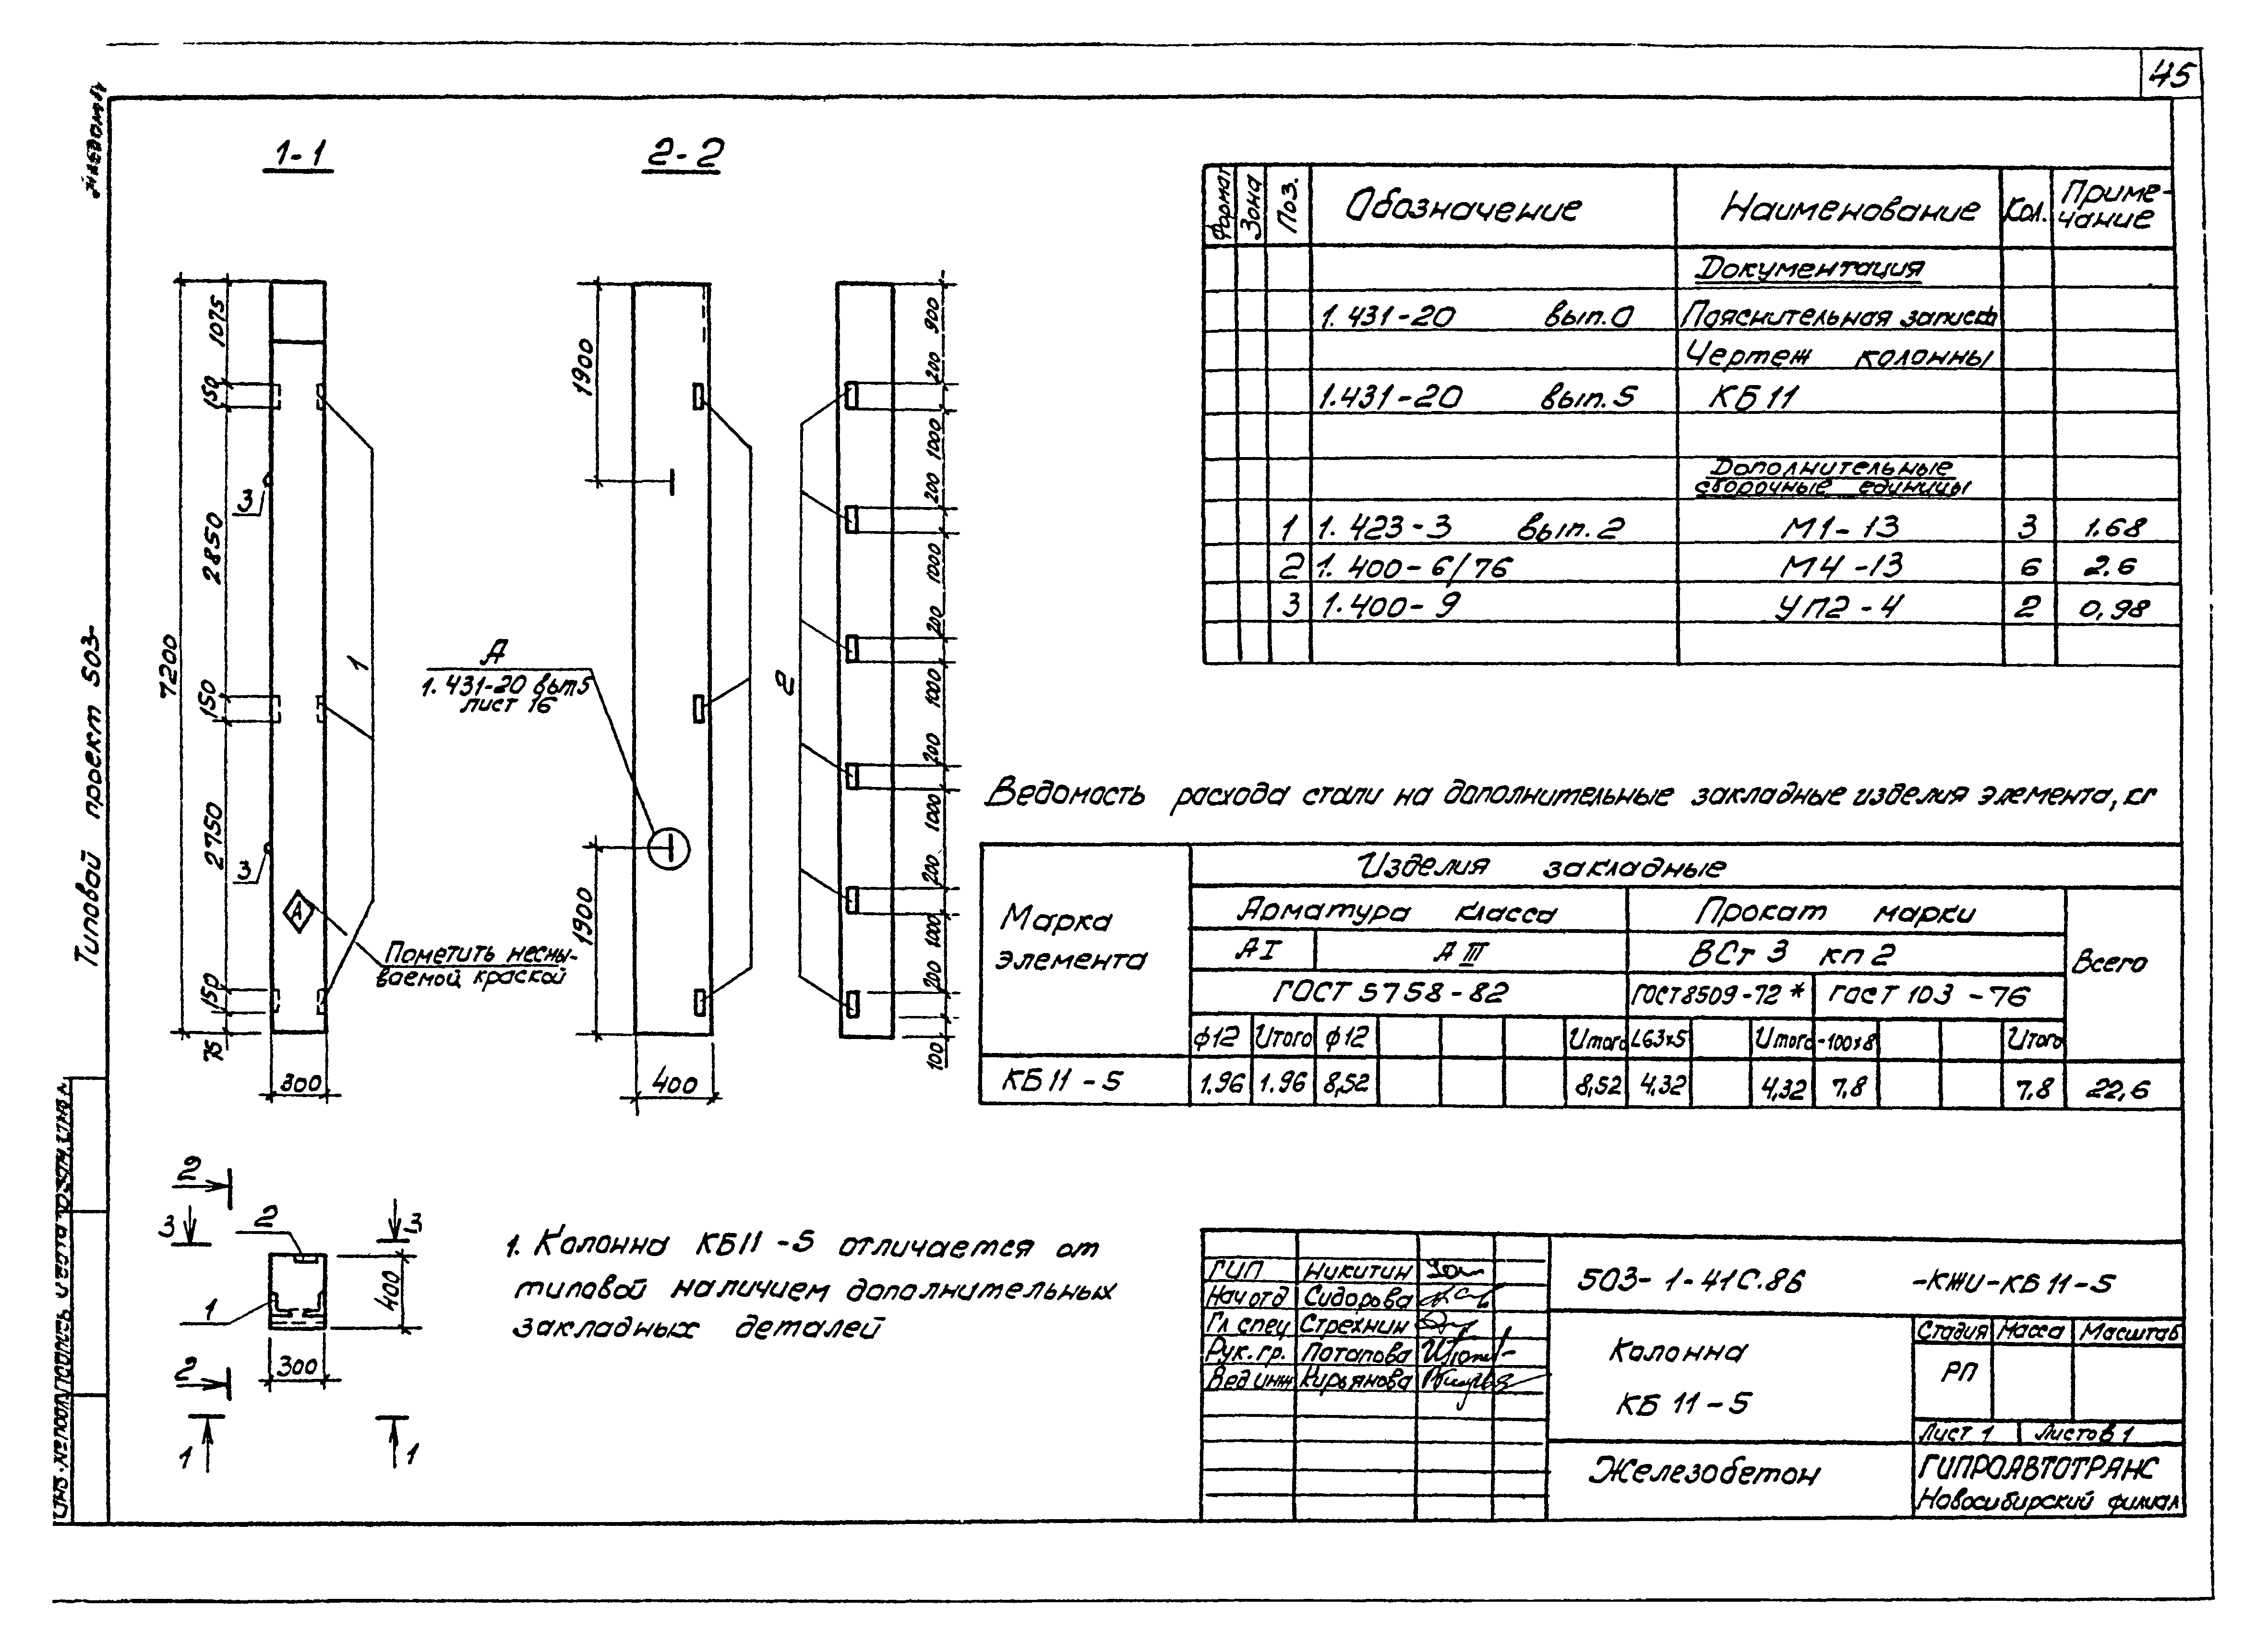 45
Типовой проект 503-
1-1
2-2
1075
150
2850
150
2750
150
75
7200
300
3
3
1
А
Пометить несмы-
ваемой краской
1900
1900
400
А
1.431-20 вып5
лист 16
2
900
200
1000
200
1000
200
1000
200
1000
200
1000
200
100
Формат Зона Поз. Обозначение Наименование Кол. Приме-
чание
Документация
1.431-20 вып.0 Пояснительная записка
Чертеж колонны
1.431-20 вып.5 КБ11
Дополнительные
сборочные единицы
1 1.423-3 вып.2 М1-13 3 1.68
2 1.400-6/76 М4-13 6 2.6
3 1.400-9 УП2-4 2 0,98
Ведомость расхода стали на дополнительные закладные изделия элемента, кг
Марка
элемента
Изделия закладные
Арматура класса Прокат марки
АI АIII ВСт 3 кп2 Всего
ГОСТ 5758-82 ГОСТ8509-72* ГОСТ 103-76
ф12 Итого ф12 Итого L63х5 Итого -100х8 Итого
КБ11-5 1.96 1.96 8,52 8,52 4,32 4,32 7,8 7,8 22,6
2
3 3
2
1
400
300
2
1 1
1. Колонна КБ11-5 отличается от
типовой наличием дополнительных
закладных деталей
ГИП Никитин
Нач отд Сидорова
Гл спец Стрехнин
Рук.гр. Потапова
Вед инж Кирьянова
503-1-41С.86 -КЖИ-КБ11-5
Колонна
КБ 11-5
Стадия Масса Масштаб
РП
Лист 1 Листов 1
Железобетон
ГИПРОАВТОТРАНС
Новосибирский филиал